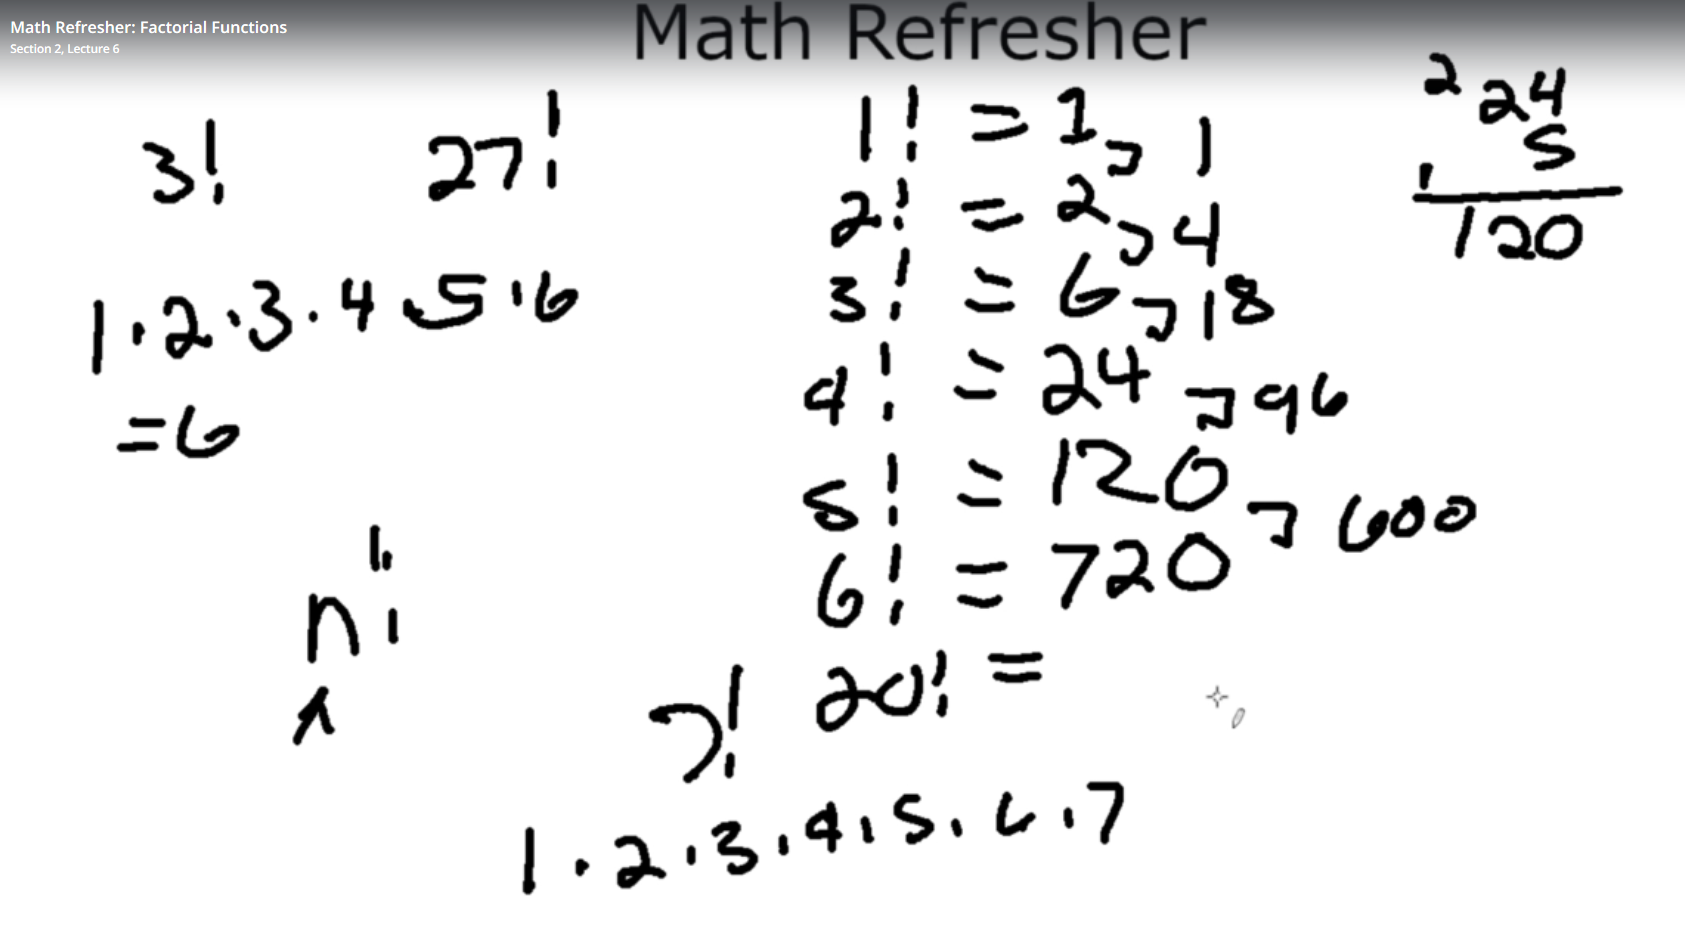 Math Refresher: Factorial Functions
Section 2, Lecture 6
Math Refresher
3! 27!
1·2·3·4·5·6
=6
n!
1! = 1
1
2! = 2
4
3! = 6
18
4! = 24
96
5! = 120
600
6! = 720
20! =
7!
1·2·3·4·5·6·7
2
24
5
120